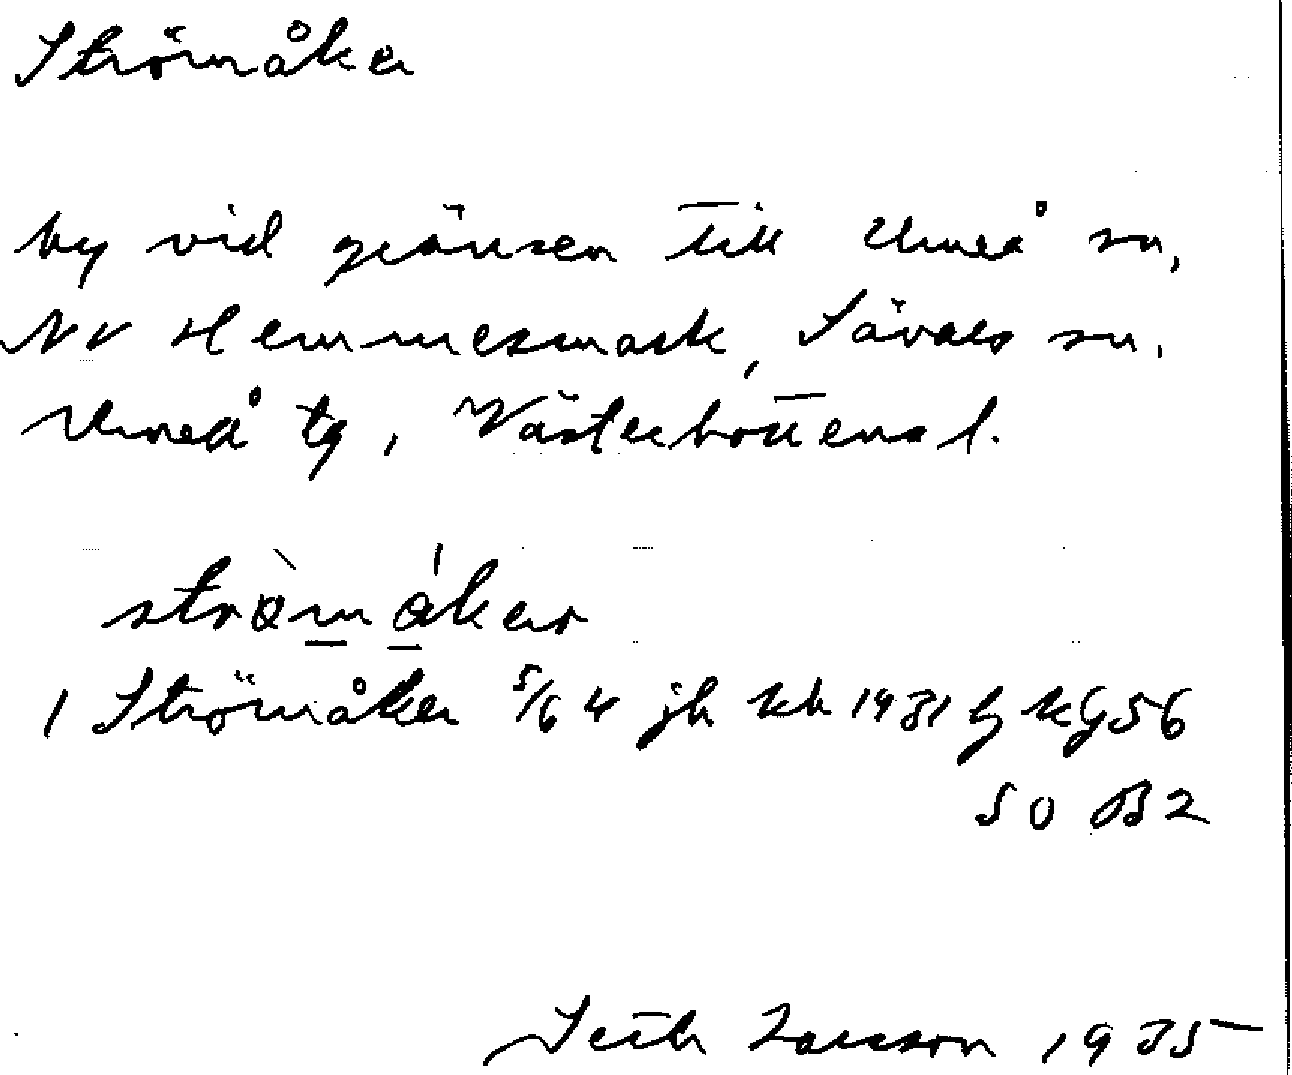 Strömåker
by vid gränsen till Umeå sn,
NV Hemmesmark, Sävars sn.
Umeå tg, Västerbottens l.
strömåker
1 Strömåker 5/64 jb kb 1931 g kg 56
SO B2
Seth Larsson 1935